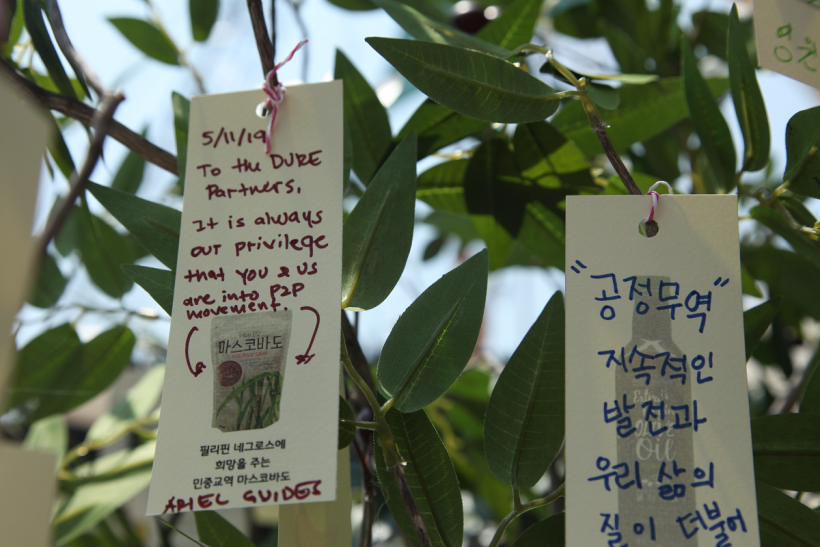 5/11/19
To the DURE
Partners,
It is always
our privilege
that you & us
are into P2P
movement.
마스코바도
필리핀 네그로스에
희망을 주는
민중교역 마스코바도
ARIEL GUIDES
"공정무역"
지속적인
발전과
우리 삶의
질이 더불어
Olive
Oil